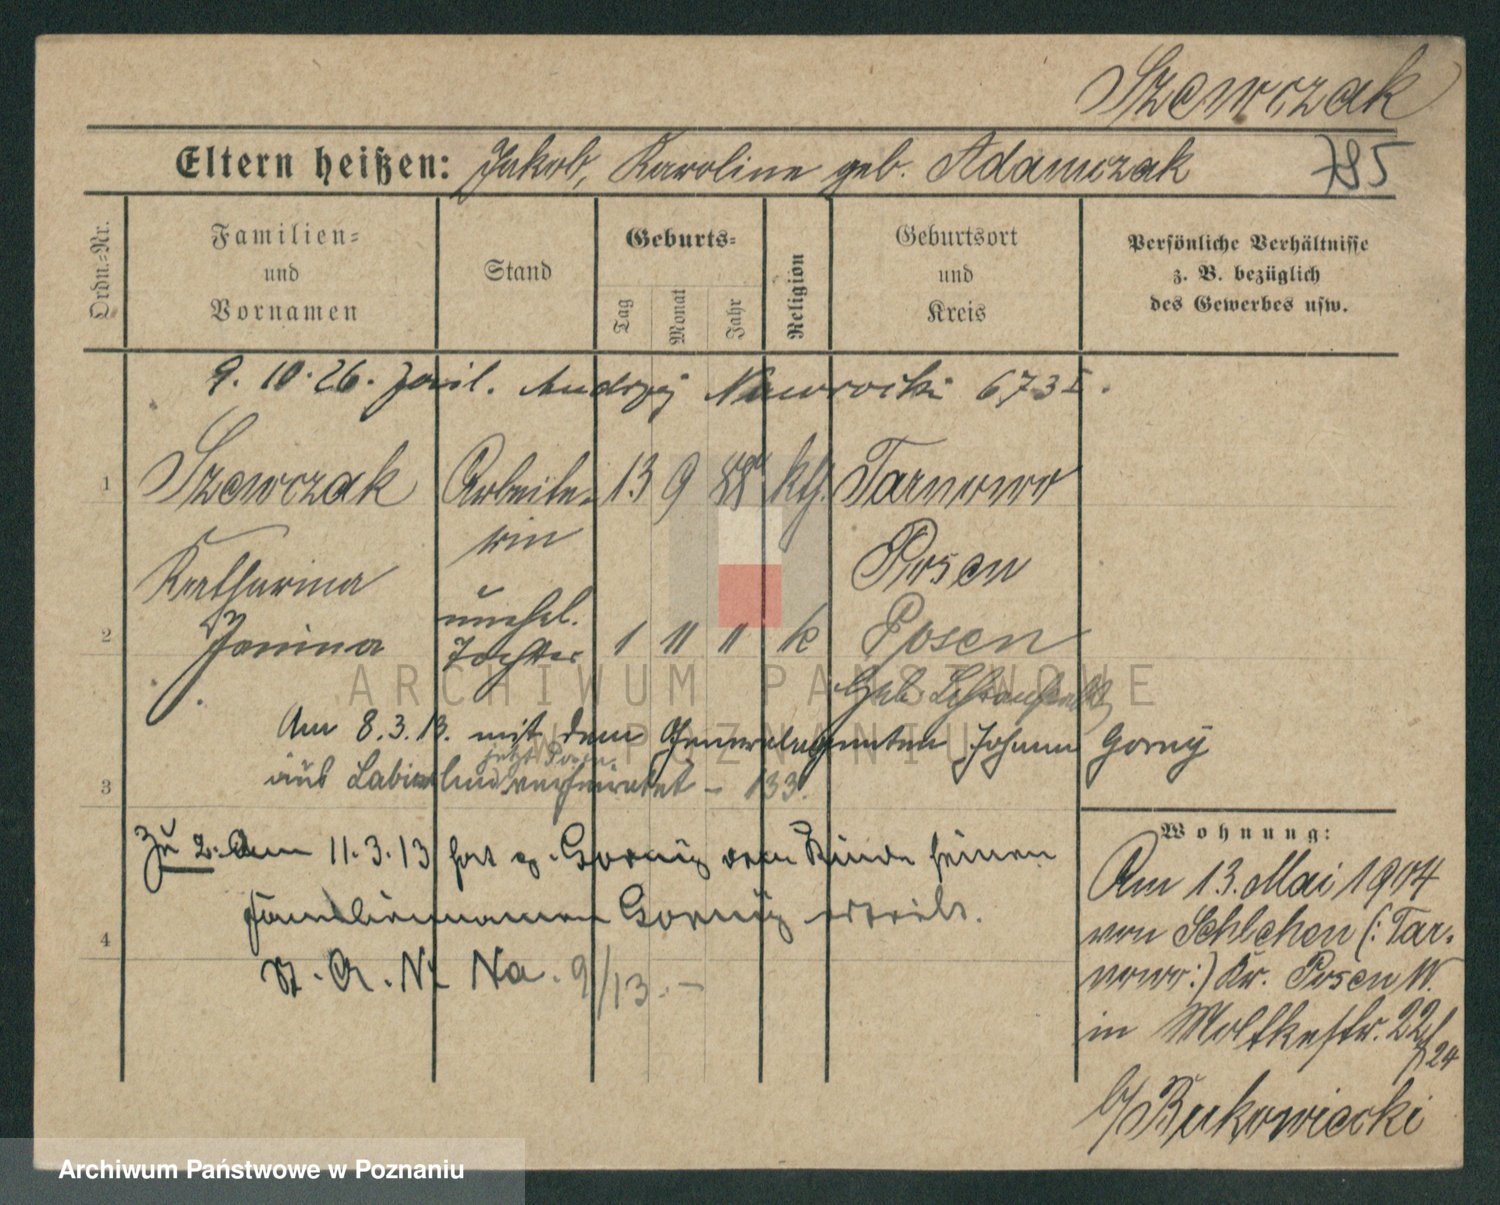 Szewczak
Eltern heißen: Jakob, Karoline geb. Adamczak 785
Ordn.-Nr.
Familien-
und
Vornamen
Stand
Geburts-
Tag
Monat
Jahr
Religion
Geburtsort
und
Kreis
Persönliche Verhältnisse
z. B. bezüglich
des Gewerbes usw.
9. 10. 26. Andrzej Nawrocki 673 I.
1 Szewczak Arbeite- 13 9 88 kth. Tarnowo
rin Posen
Katharina
2 Janina unehel. Tochter 1 11 11 k Posen
Geb.
Am 8.3.13. mit dem Generalagenten Johann Gorny
jetzt Posen
3 aus verheiratet - 133.
Zu 2. Am 11.3.13 hat p. Gorny dem Kinde seinen
4 Familiennamen Gorny erteilt.
St. A. Na. 9/13.-
Wohnung:
Am 13. Mai 1904
von Schlehen (: Tar-
nowo :) Kr. Posen W.
in Moltkestr. 22/24
b/Bukowiecki
ARCHIWUM PAŃSTWOWE
W POZNANIU
Archiwum Państwowe w Poznaniu